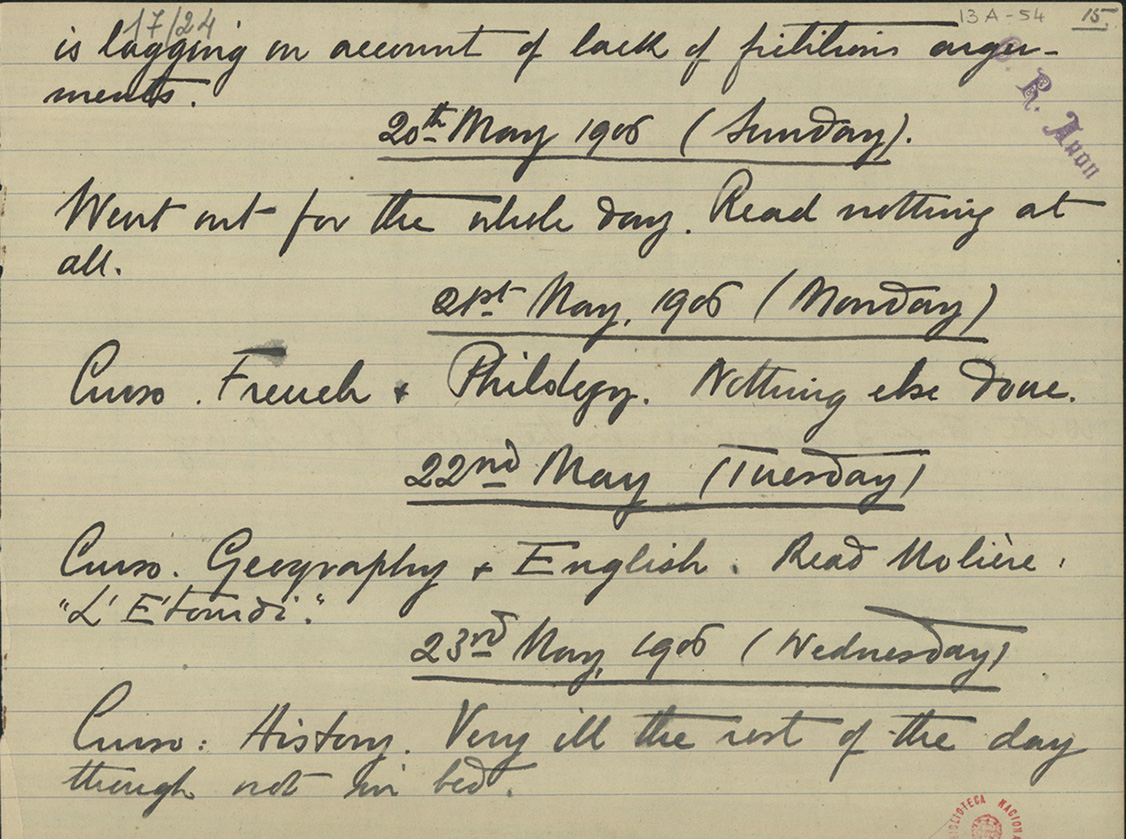 17/24
13 A - 54
15.
is lagging on account of lack of fictitious argu-
ments.
C. R. Anon
20th May 1906 (Sunday).
Went out for the whole day. Read nothing at
all.
21st May, 1906 (Monday)
Curso. French & Philology. Nothing else done.
22nd May (Tuesday)
Curso. Geography & English. Read Molière:
"L'E'tourdi."
23rd May, 1906 (Wednesday)
Curso: History. Very ill the rest of the day
though not in bed.
BIBLIOTECA NACIONAL